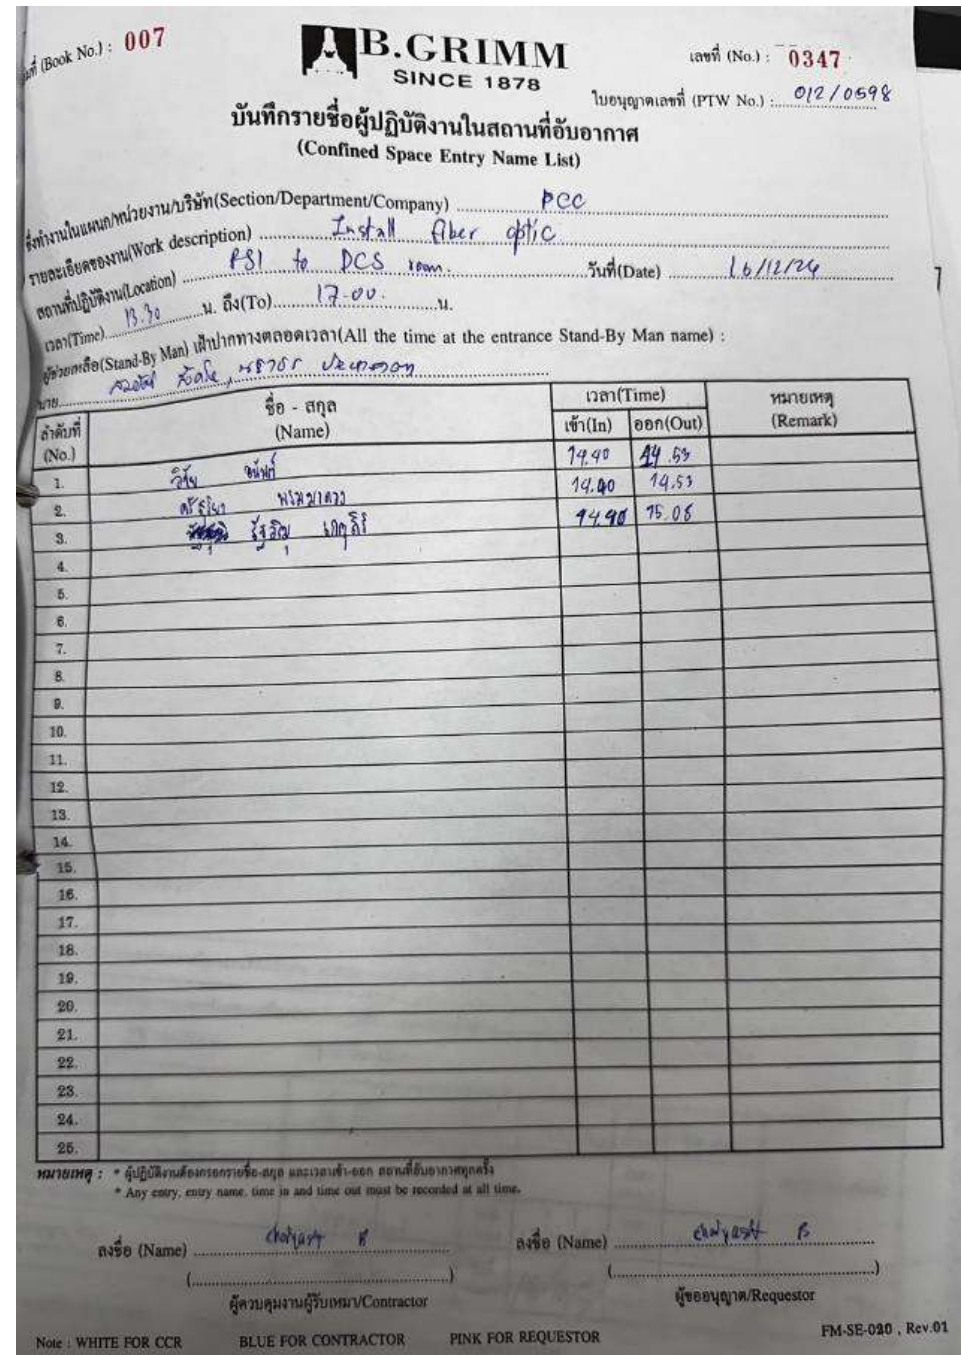 เล่มที่ (Book No.) : 007
B.GRIMM
SINCE 1878
เลขที่ (No.) : 0347
ใบอนุญาตเลขที่ (PTW No.) : 012/0598
บันทึกรายชื่อผู้ปฏิบัติงานในสถานที่อับอากาศ
(Confined Space Entry Name List)
ซึ่งทำงานในแผนก/หน่วยงาน/บริษัท(Section/Department/Company) PCC
รายละเอียดของงาน(Work description) Install fiber optic
สถานที่ปฏิบัติงาน(Location) PS1 to DCS room. วันที่(Date) 16/12/24
เวลา(Time) 13.30 น. ถึง(To) 17.00 น.
ผู้ช่วยเหลือ(Stand-By Man) เฝ้าปากทางตลอดเวลา(All the time at the entrance Stand-By Man name) :
นาย
ลำดับที่ (No.) ชื่อ - สกุล (Name) เวลา(Time) หมายเหตุ (Remark)
เข้า(In) ออก(Out)
1. วิชัย 14.40 14.53
2. 14.40 14.53
3. รัฐวิฒุ 14.40 15.08
4.
5.
6.
7.
8.
9.
10.
11.
12.
13.
14.
15.
16.
17.
18.
19.
20.
21.
22.
23.
24.
25.
หมายเหตุ : * ผู้ปฏิบัติงานต้องกรอกรายชื่อ-สกุล และเวลาเข้า-ออก สถานที่อับอากาศทุกครั้ง
* Any entry, entry name, time in and time out must be recorded at all time.
ลงชื่อ (Name) ลงชื่อ (Name)
ผู้ควบคุมงานผู้รับเหมา/Contractor ผู้ขออนุญาต/Requestor
Note : WHITE FOR CCR BLUE FOR CONTRACTOR PINK FOR REQUESTOR FM-SE-020 , Rev.01